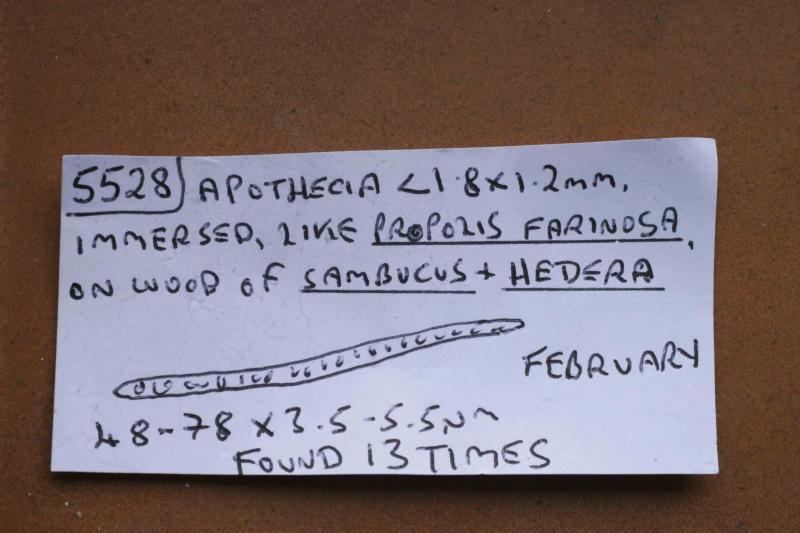 5528) APOTHECIA <1.8×1.2mm,
IMMERSED, LIKE PROPOLIS FARINOSA,
ON WOOD OF SAMBUCUS + HEDERA
FEBRUARY
48-78 × 3.5-5.5µm
FOUND 13 TIMES